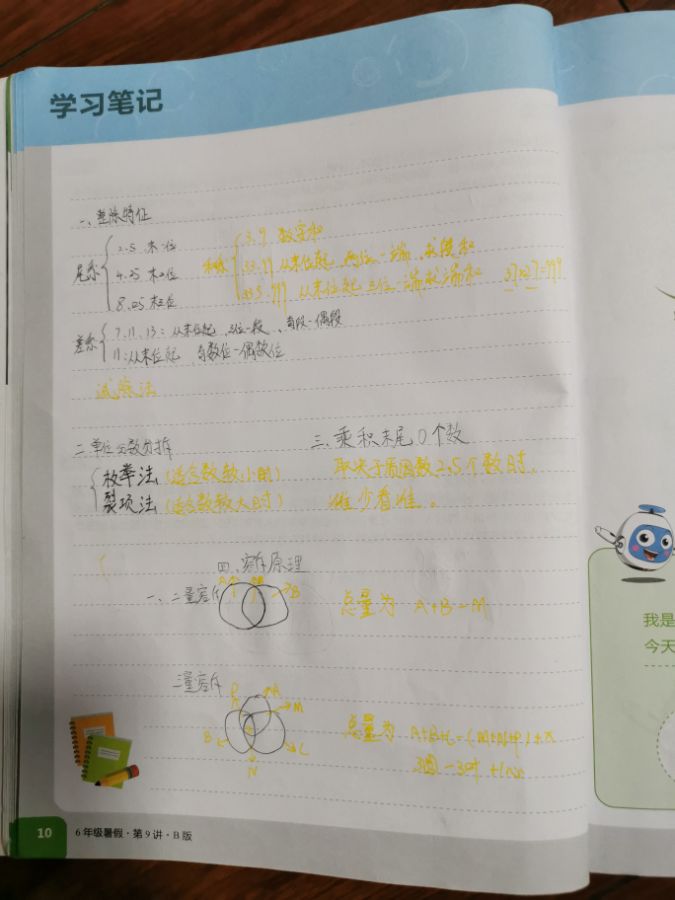 学习笔记
一、整除特征
尾系 2.5 末一位
4.25 末二位
8. 末三位
和系 3.9 数字和
33.99 从末位起 两位一端 求段和
333.999 从末位起 三位一端 求端和 37×27=999
差系 7.11.13：从末位起 三位一段、奇段-偶段
11：从末位起 奇数位-偶数位
试除法
二 单位分数分拆
枚举法（适合数较小时）
裂项法（适合数较大时）
三、乘积末尾0个数
取决于质因数2.5个数时，
谁少看谁。
四、容斥原理
一、二量容斥
A B
总量为 A+B-M
三量容斥
A M B C N
总量为 A+B+C-(M+N+P)+X
3圆-3叶
我是
今天
10 6年级暑假·第9讲·B版